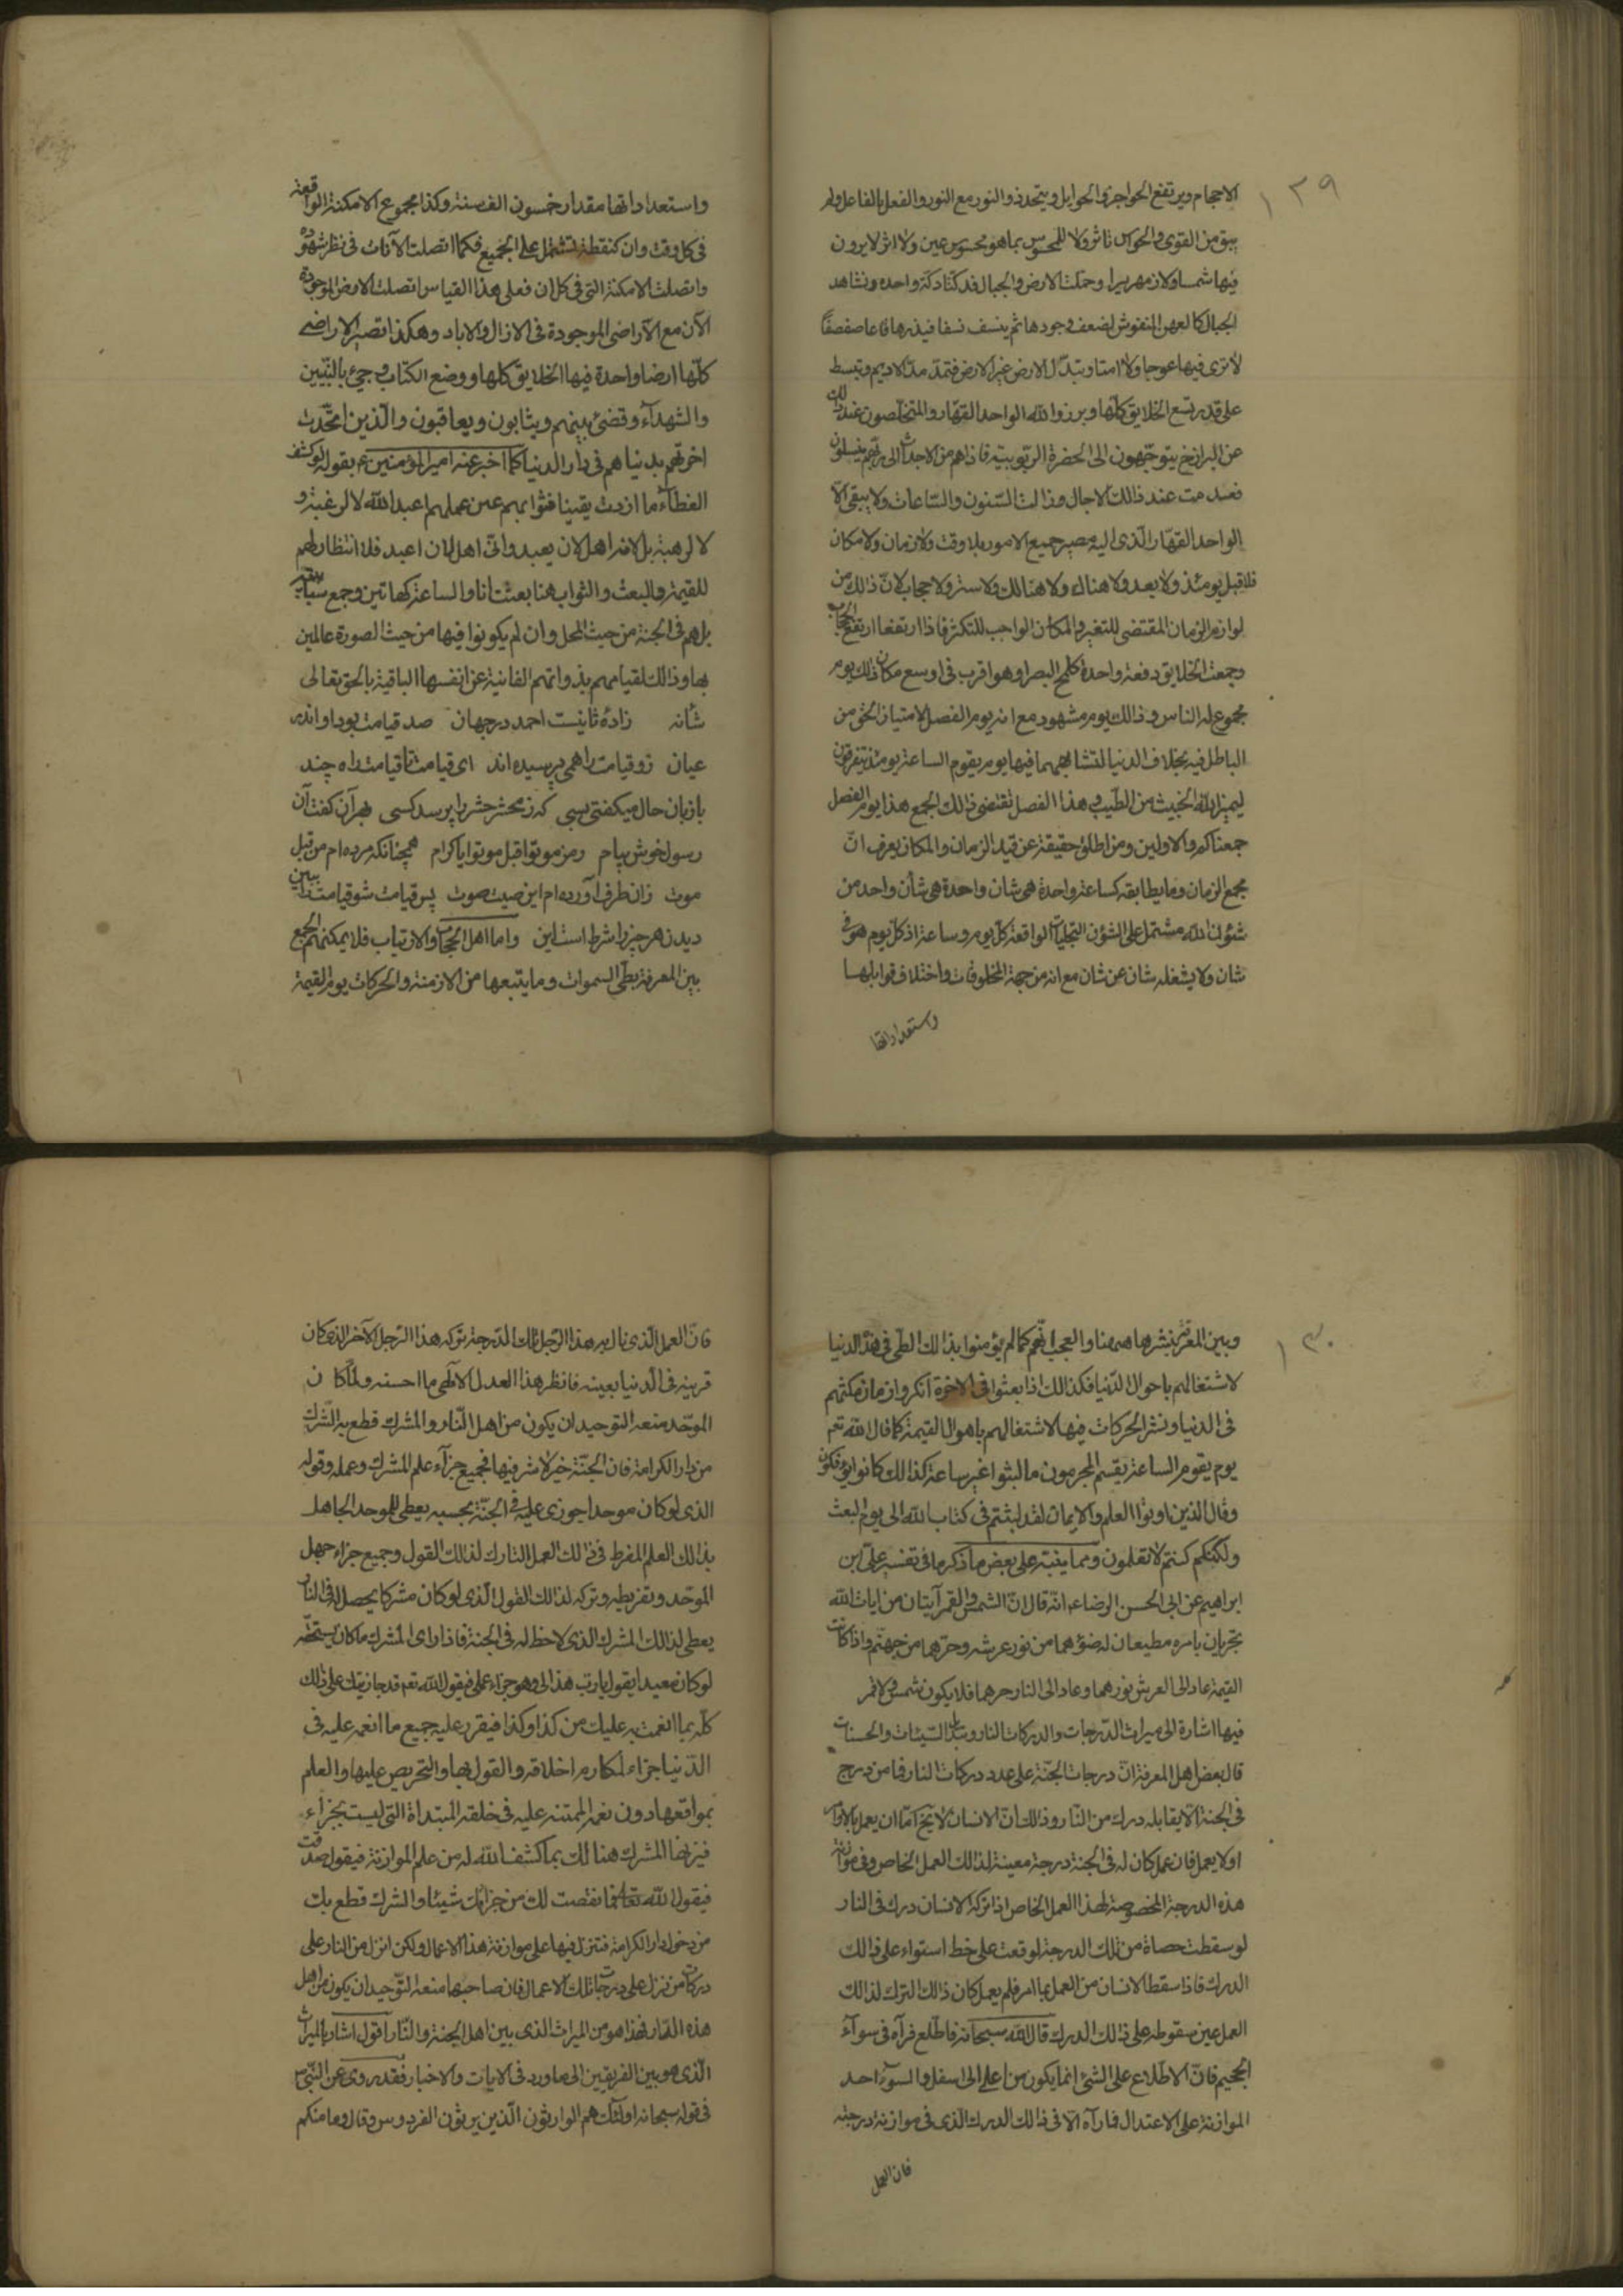 ١٢٩
الاجحام ويرتفع الحواجز والحوايل ويتحد ذو النور مع النور والفعل بالفاعل ولم
يبق من القوى والحواس تاثر ولا للمحسوس بما هو محسوس عين ولا اثر لا يرون
فيها شمسا ولا زمهريرا وحملت الارض والجبال فدكتا دكة واحدة ونشاهد
الجبال كالعهن المنفوش لضعف وجودها ثم ينسف نسفا فيذرها قاعا صفصفا
لا ترى فيها عوجا ولا امتا وتبدّل الارض غير الارض فتمدّ مدّ الاديم وتبسط
على قدر تسع الخلايق كلّها وبرزوا لله الواحد القهّار والمتخلّصون عند ذلك
عن البرازخ يتوجّهون الى الحضرة الربّوبيّة فاذا هم من الاجداث الى ربّهم ينسلون
فعدمت عند ذالك الاجال وذالت السّنون والسّاعات ولا يبقى الّا
الواحد القهّار الّذى اليه مصير جميع الامور بلا وقت ولا زمان ولا مكان
فلا قبل يومئذ ولا بعد ولا هناك ولا هنالك ولا ستر ولا حجاب لانّ ذالك من
لوازم الزمان المقتضى للتغير والمكان الواجب للتكثر فاذا ارتفعا ارتفع الحجاب
وجمعت الخلايق دفعة واحدة كلمح البصر او هو اقرب فى اوسع مكان ذالك يوم
مجموع له الناس وذالك يوم مشهود مع انه يوم الفصل لامتياز الحق من
الباطل فيه بخلاف الدنيا لتشابههما فيها يوم يقوم الساعة يومئذ يتفرقون
ليميز الله الخبيث من الطيب وهذا الفصل تقتضى ذالك الجمع هذا يوم الفصل
جمعناكم والاولين ومن اطلق حقيقة عن قيد الزمان والمكان يعرف انّ
مجمع الزمان وما يطابقه كساعة واحدة هى شان واحدة هى شأن واحد من
شئون الله مشتمل على الشؤن التجليات الواقعة كلّ يوم وساعة اذ كلّ يوم هو فى
شان ولا يشغله شان عن شان مع انه من جهة المخلوقات واختلاف قوابلها
واستعداداتها
واستعداداتها مقدار خمسون الف سنة وكذا مجموع الامكنة الواقعة
فى كل وقت وان كنقطة تشتمل على الجميع فكما اتصلت الآنات فى نظر شهوده
واتصلت الامكنة التى فى كل ان فعلى هذا القياس اتصلت الارض الموجودة
الآن مع الآراضى الموجودة فى الازال والاباد وهكذا تصير الاراضى
كلّها ارضا واحدة فيها الخلايق كلها ووضع الكتاب وجىء بالنّبيّين
والشهدآء وقضى بينهم ويثابون ويعاقبون والّذين اتّحدت
اخرتهم بدنياهم فى دار الدنيا كما اخبر عنه امير المؤمنين ع بقوله لو كشف
الغطآء ما ازددت يقينا فثوابهم عين عملهم اعبد الله لا لرغبة و
لا لرهبة بل لانه اهل لان يعبد وانّى اهل لان اعبد فلا انتظار لهم
للقيمة والبعث والثواب هنا بعثت انا والساعة كهاتين وجمع سبابتيه
بل هم فى الجنة من حيث المحل وان لم يكونوا فيها من حيث الصورة عالمين
بها وذالك لقيامهم بذواتهم الفانية عن انفسها الباقية بالحق تعالى
شأنه زادۀ ثانيست احمد در جهان صد قيامت بود او اندر
عيان زو قيامت را همى پرسيده اند اى قيامت تا قيامت راه چند
با زبان حال ميكفتى بسى كه ز محشر حشر را پرسد كسى بهر آن كفت آن
رسول خوش پيام رمز موتوا قبل موتوا يا كرام همچنانكه مرده ام من قبل
موت زان طرف آورده ام اين صيت وصوت پس قيامت شو قيامت را ببين
ديدن هر چيز را شرط است اين واما اهل الحجاب والارتياب فلا يمكنهم الجمع
بين المعرفة بطّى السموات وما يتّبعها من الازمنة والحركات يوم القيمة
١٣٠
وبين المعرفة بنشرها ههنا والعجب انّهم كما لم يؤمنوا بذالك الطّى فى هذه الدنيا
لاشتغالهم باحوال الدّنيا فكذالك اذا بعثوا فى الاخرة انكروا زمان مكثهم
فى الدنيا ونشر الحركات فيها لاشتغالهم باهوال القيمة كما قال الله تعم
يوم يقوم الساعة يقسم المجرمون ما لبثوا غير ساعة كذالك كانوا يؤفكون
وقال الذين اوتوا العلم والايمان لقد لبثتم فى كتاب الله الى يوم البعث
ولكنكم كنتم لا تعلمون ومما ينبّه على بعض ما ذكر ما فى تفسير علىّ ابن
ابراهيم عن ابى الحسن الرضا ع انّه قال انّ الشمس والقمر آيتان من ايات الله
تجريان بامره مطيعان له ضوؤهما من نور عرشه وحرّهما من جهنّم واذا كانت
القيمة عاد الى العرش نورهما وعاد الى النار حرهما فلا يكون شمس ولا قمر
فيها اشارة الى ميراث الدّرجات والدركات النار وتبادل السّيئات والحسنات
قال بعض اهل المعرفة انّ درجات الجنّة على عدد دركات النار فما من درج
فى الجنة الّا يقابله درك من النّار وذالك انّ الانسان لا يخ امّا ان يعمل بالاوامر
او لا يعمل فان عمل كان له فى الجنة درجة معينة لذالك العمل الخاص وفى موازنة
هذه الدرجة المخصوصة لهذا العمل الخاص اذا تركه الانسان درك فى النار
لو سقطت حصاة من تلك الدرجة لوقعت على خط استواء على ذالك
الدرك فاذا سقط الانسان من العمل بما امر فلم يعمل كان ذالك الترك لذالك
العمل عين سقوطه على ذالك الدرك قال الله سبحانه فاطّلع فرآه فى سوآء
الجحيم فانّ الاطّلاع على الشئ انما يكون من اعلى الى اسفل والسوآء حد
الموازنة على الاعتدال فما رآه الّا فى ذالك الدرك الّذى فى موازنة درجته
فان العمل
فانّ العمل الّذى نال به هذا الرّجل تلك الدّرجة تركه هذا الرّجل الآخر الّذى كان
قرينه فى الدّنيا بعينه فانظر هذا العدل الآلهى ما احسنه ولمّا كان
الموحّد منعه التوحيد ان يكون من اهل النّار والمشرك قطع به الشّرك
من دار الكرامة فان الجنّة خير لا شر فيها فجميع جزآء علم المشرك وعمله وقوله
الذى لو كان موحدا جوزى عليه فى الجنّة بحسبه يعطى للموحد الجاهل
بذالك العلم المفرط فى ذالك العمل التارك لذالك القول وجميع جزاء جهل
الموّحد وتفريطه وتركه لذالك القول الّذى لو كان مشركا يحصل له فى النار
يعطى لذالك المشرك الذى لا حظ له فى الجنة فاذا راى المشرك ما كان يستحقه
لو كان سعيدا يقول يا رب هذا لى وهو جزاء عملى فيقول الله تعم قد جازيتك على ذالك
كلّه بما انعمت به عليك من كذا وكذا فيقرر عليه جميع ما انعم عليه فى
الدّنيا جزاء لمكارم اخلاقه والقول بها والتحريص عليها والعلم
بمواقعها دون نعم الممتنّه عليه فى خلقه المبتدأة التى ليست بجزآء
فيزنها المشرك هنالك بما كشف الله له من علم الموازنة فيقول صدقت
فيقول الله تعالى فما نقصت لك من جزائك شيئا والشرك قطع بك
من دخول دار الكرامة فتنزل فيها على موازنة هذه الاعمال ولكن انزل من النار على
دركات من نزل على درجات تلك الاعمال فان صاحبها منعه التّوحيد ان يكون من اهل
هذه الدّار فهذا هو من الميراث الذى بين اهل الجنة والنّار اقول اشار بالميراث
الّذى هو بين الفريقين الى ما ورد فى الايات والاخبار فقد روى عن النّبىّ ص
فى قوله سبحانه اولئك هم الوارثون الّذين يرثون الفردوس وقال وما منكم